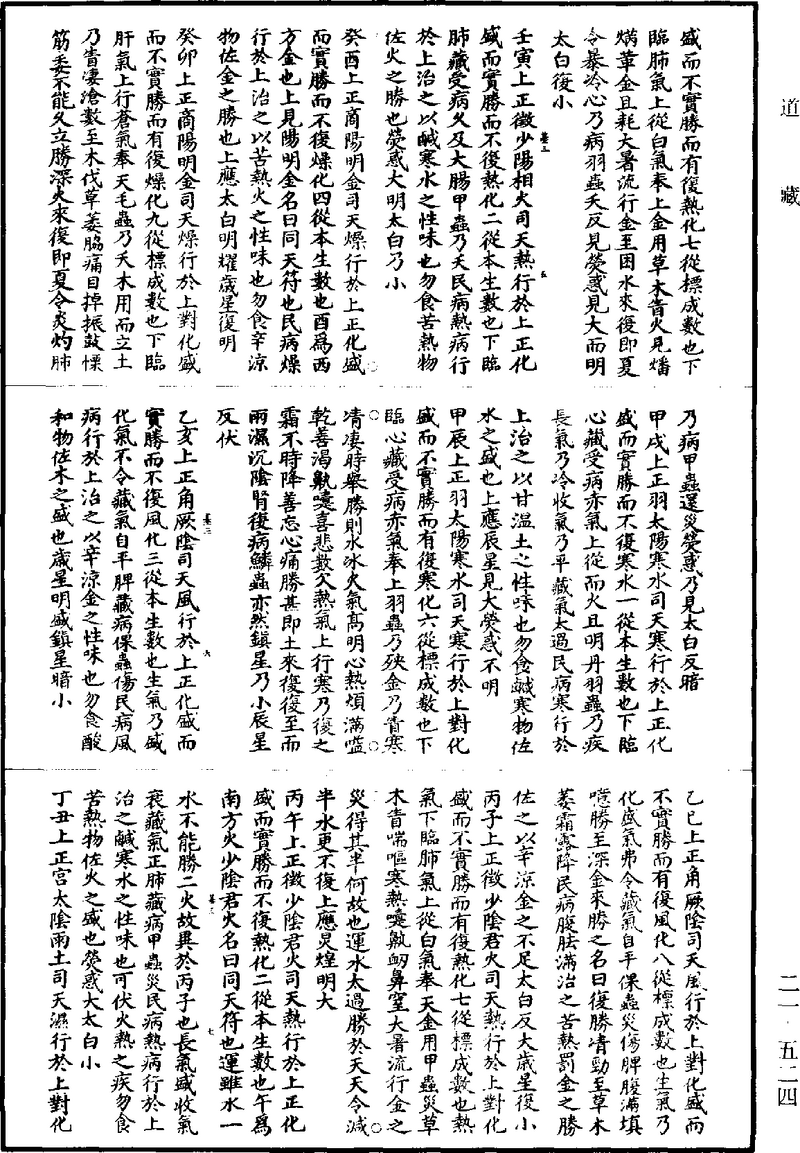 道藏
盛而不實勝而有復熱化七從標成數也下
臨肺氣上從白氣奉上金用草木眚火見燔
焫革金且耗大暑流行金至困水來復即夏
令暴冷心乃病羽蟲夭反見熒惑見大而明
太白復小
壬寅上正徵少陽相火司天熱行於上正化
盛而實勝而不復熱化二從本生數也下臨
肺藏受病久及大腸甲蟲乃夭民病熱病行
於上治之以鹹寒水之性味也勿食苦熱物
佐火之勝也熒惑大明太白乃小
癸酉上正商陽明金司天燥行於上正化盛
而實勝而不復燥化四從本生數也酉爲西
方金也上見陽明金名曰同天符也民病燥
行於上治之以苦熱火之性味也勿食辛涼
物佐金之勝也上應太白明耀歲星復明
癸卯上正商陽明金司天燥行於上對化盛
而不實勝而有復燥化九從標成數也下臨
肝氣上行蒼氣奉天毛蟲乃夭木用而立土
乃眚凄滄數至木伐草萎脇痛目掉振鼓慄
筋委不能久立勝深火來復即夏令炎灼肺
乃病甲蟲還災熒惑乃見太白反暗
甲戌上正羽太陽寒水司天寒行於上正化
盛而實勝而不復寒水一從本生數也下臨
心藏受病亦氣上從而火且明丹羽蟲乃疾
長氣乃冷收氣乃平藏氣太過民病寒行於
上治之以甘温土之性味也勿食鹹寒物佐
水之盛也上應辰星見大熒惑不明
甲辰上正羽太陽寒水司天寒行於上對化
盛而不實勝而有復寒化六從標成數也下
臨心藏受病亦氣奉上羽蟲乃殃金乃眚寒
凊凄時舉勝則水冰火氣高明心熱煩滿嗌
乾善渴鼽嚏喜悲數欠熱氣上行寒乃復之
霜不時降善忘心痛勝甚即土來復復至而
雨濕沉陰腎復病鱗蟲亦然鎮星乃小辰星
反伏
乙亥上正角厥陰司天風行於上正化盛而
實勝而不復風化三從本生數也生氣乃盛
化氣不令藏氣自平脾藏病倮蟲傷民病風
病行於上治之以辛涼金之性味也勿食酸
和物佐木之盛也歲星明盛鎮星暗小
乙巳上正角厥陰司天風行於上對化盛而
不實勝而有復風化八從標成數也生氣乃
化盛氣弗令藏氣自平倮蟲災傷脾腹滿填
噫勝至深金來勝之名曰復勝凊勁至草木
萎霜露降民病腹胠滿治之苦熱罰金之勝
佐之以辛涼金之不足太白反大歲星復小
丙子上正徵少陰君火司天熱行於上對化
盛而不實勝而有復熱化七從標成數也熱
氣下臨肺氣上從白氣奉天金用甲蟲災草
木眚喘嘔寒熱嚏鼽衂鼻窒大暑流行金之
災得其半何故也運水太過勝於天天令減
半水更不復上應炅煌明大
丙午上正徵少陰君火司天熱行於上正化
盛而實勝而不復熱化二從本生數也午爲
南方火少陰君火名曰同天符也運雖水一
水不能勝二火故異於丙子也長氣盛收氣
衰藏氣正肺藏病甲蟲災民病熱病行於上
治之鹹寒水之性味也可伏火熱之疾勿食
苦熱物佐火之盛也熒惑大太白小
丁丑上正宮太陰雨土司天濕行於上對化
二一·五二四